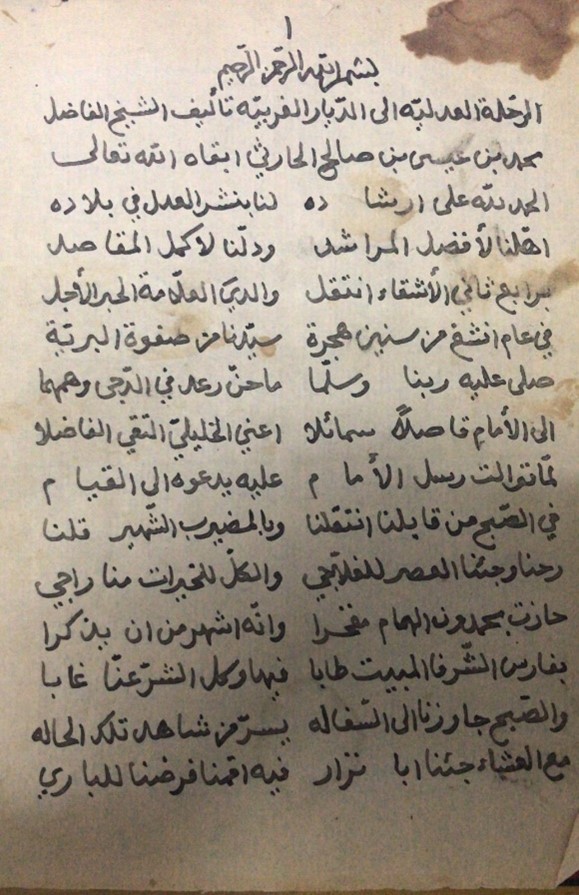 ١
بسم الله الرحمن الرحيم
الرحلة العدليّه الى الدّيار الغربيّه تأليف الشيخ الفاضل
محمد بن عيسى بن صالح الحارثي ابقاه الله تعالى
الحمد لله على ارشاده لنا بنشر العدل في بلاده
اهّلنا لأفضل المراشد ودلّنا لاكمل المقاصد
برابع ثاني الأشقاء انتقل والدي العلّامة الحبر الأجل
في عام من سنين هجرة سيّدنا من صفوة البريّة
صلى عليه ربنا وسلّما ما حنّ رعد في الدّجى وهمهما
الى الأمام قاصلاً سمائلا اعني الخليليّ التقي الفاضلا
لمّا توالت رسل الأمام عليه يدعوه الى القيام
في الصّبح من قابلنا انتقلنا وبالمضيرب الشّهير قلنا
رحنا وجئنا العصر للفلاّجي والكلّ للخيرات منا راجي
حازت بحمدونه الهمام مفخرا وانّه اشهر من ان يذكرا
بفارس الشّرفا المبيت طابا فيها وكل الشرّ عنّا غابا
والصّبح جاوزنا الى السّفاله يسرّ من شاهد تلك الحاله
مع العشاء جئنا ابا نزار فيه اقمنا فرضنا للباري